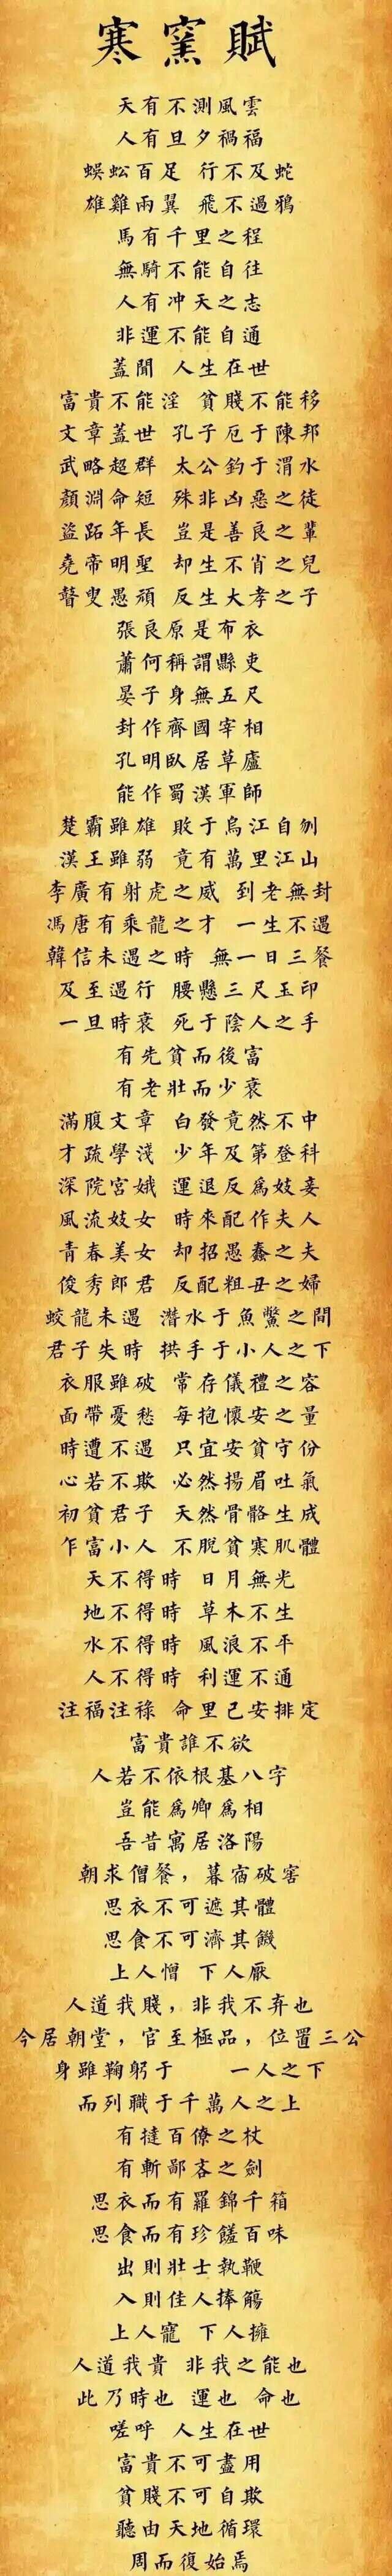 寒窯賦
天有不測風雲
人有旦夕禍福
蜈蚣百足 行不及蛇
雄雞兩翼 飛不過鴉
馬有千里之程
無騎不能自往
人有冲天之志
非運不能自通
蓋聞 人生在世
富貴不能淫 貧賤不能移
文章蓋世 孔子厄于陳邦
武略超群 太公釣于渭水
顏淵命短 殊非凶惡之徒
盜跖年長 豈是善良之輩
堯帝明聖 却生不肖之兒
瞽叟愚頑 反生大孝之子
張良原是布衣
蕭何稱謂縣吏
晏子身無五尺
封作齊國宰相
孔明臥居草廬
能作蜀漢軍師
楚霸雖雄 敗于烏江自刎
漢王雖弱 竟有萬里江山
李廣有射虎之威 到老無封
馮唐有乘龍之才 一生不遇
韓信未遇之時 無一日三餐
及至遇行 腰懸三尺玉印
一旦時衰 死于陰人之手
有先貧而後富
有老壯而少衰
滿腹文章 白發竟然不中
才疏學淺 少年及第登科
深院宮娥 運退反爲妓妾
風流妓女 時來配作夫人
青春美女 却招愚蠢之夫
俊秀郎君 反配粗丑之婦
蛟龍未遇 潛水于魚鱉之間
君子失時 拱手于小人之下
衣服雖破 常存儀禮之容
面帶憂愁 每抱懷安之量
時遭不遇 只宜安貧守份
心若不欺 必然揚眉吐氣
初貧君子 天然骨骼生成
乍富小人 不脫貧寒肌體
天不得時 日月無光
地不得時 草木不生
水不得時 風浪不平
人不得時 利運不通
注福注祿 命里已安排定
富貴誰不欲
人若不依根基八字
豈能爲卿爲相
吾昔寓居洛陽
朝求僧餐，暮宿破窖
思衣不可遮其體
思食不可濟其饑
上人憎 下人厭
人道我賤，非我不弃也
今居朝堂，官至極品，位置三公
身雖鞠躬于 一人之下
而列職于千萬人之上
有撻百僚之杖
有斬鄙吝之劍
思衣而有羅錦千箱
思食而有珍饈百味
出則壯士執鞭
入則佳人捧觴
上人寵 下人擁
人道我貴 非我之能也
此乃時也 運也 命也
嗟呼 人生在世
富貴不可盡用
貧賤不可自欺
聽由天地循環
周而復始焉